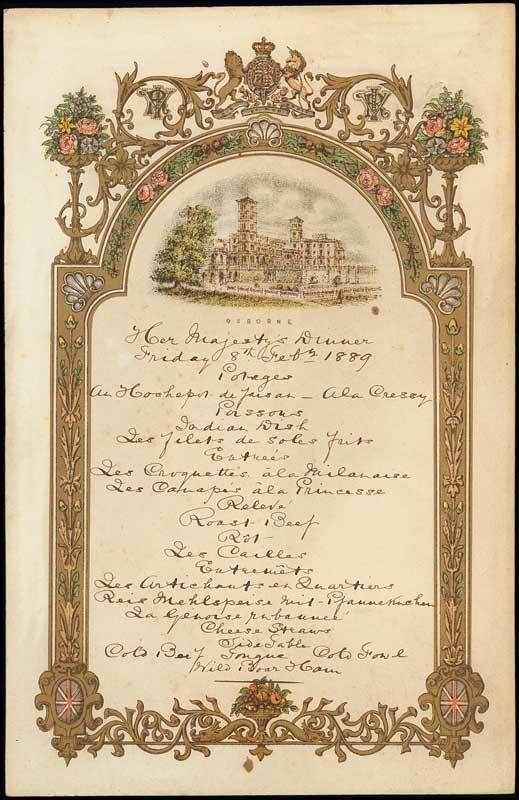 OSBORNE
Her Majesty's Dinner
Friday 8th Feby 1889
Potages
Au Hoshepot de faisan – A la Cressy
Poissons
Indian Dish
Les filets de soles frits
Entrées
Les Croquettes à la Milanaise
Les Canapés à la Princesse
Relevé
Roast Beef
Rôt
Les Cailles
Entremêts
Les Artichauts en Quartiers
Reis Mehlspeise mit Pfannekuchen
La Genoise rubannée
Cheese Straws
Side Table
Cold Beef Tongue Cold Fowl
Wild Boar Ham